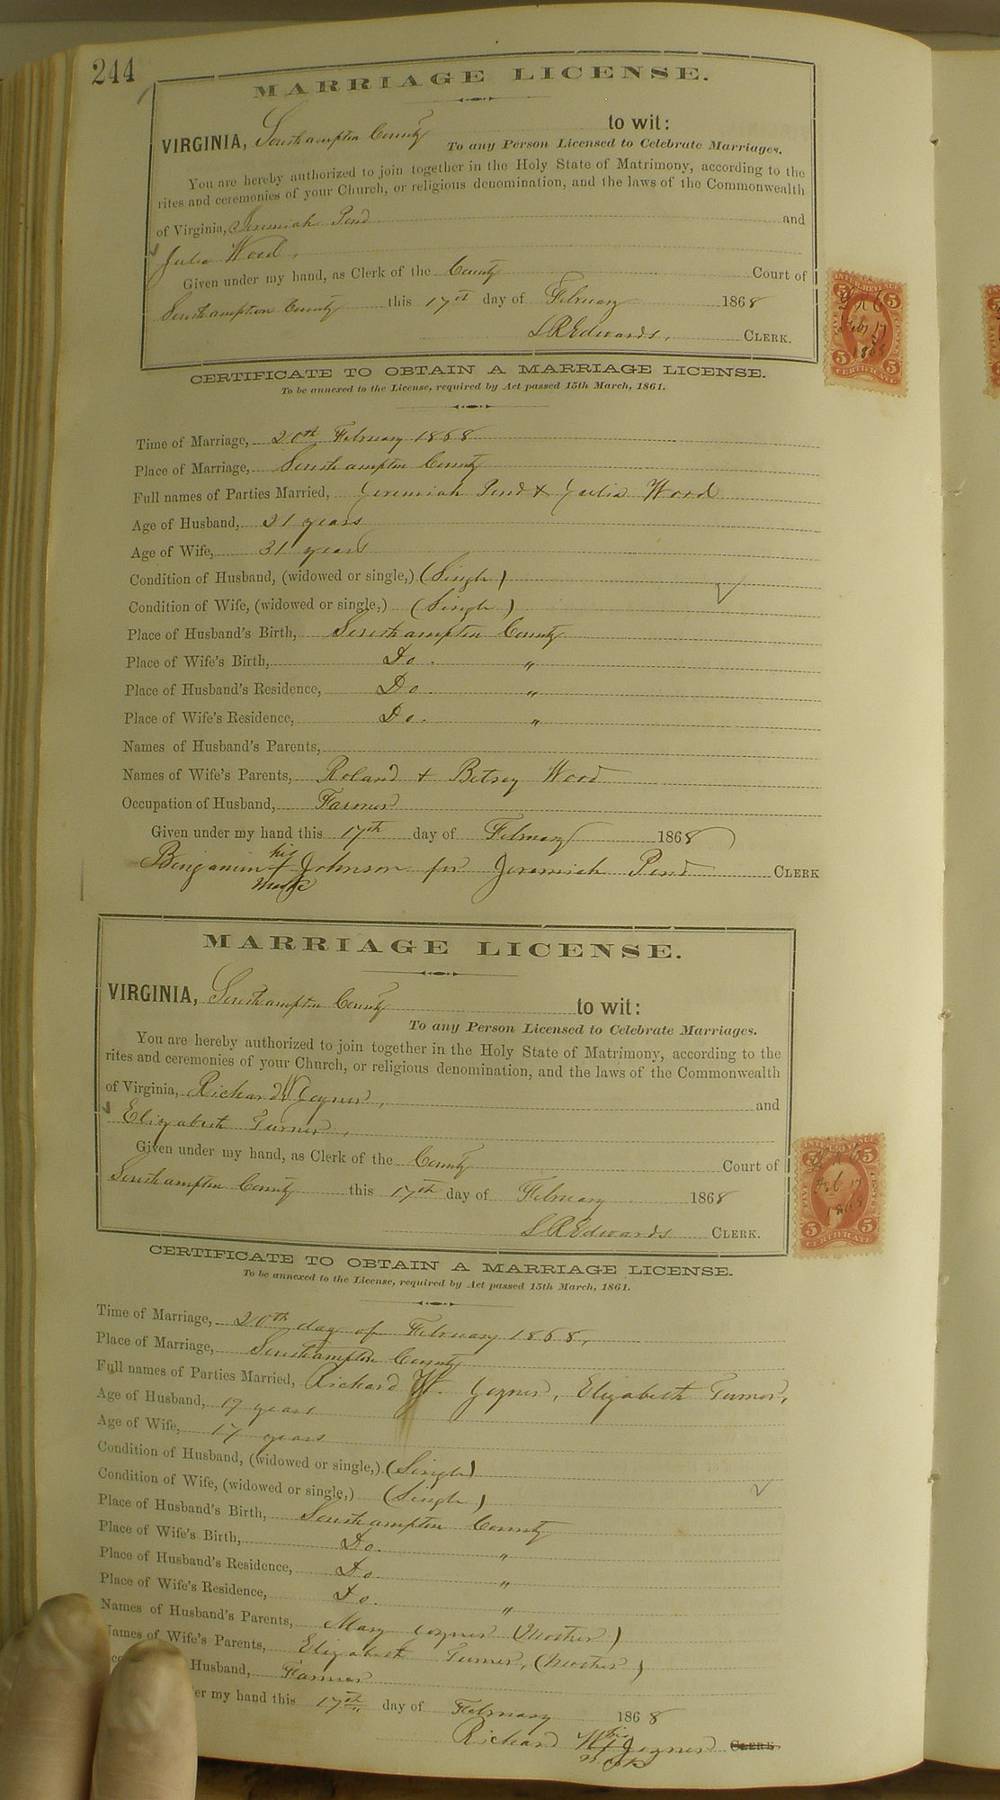 244
MARRIAGE LICENSE.
VIRGINIA, Southampton County to wit:
To any Person Licensed to Celebrate Marriages.
You are hereby authorized to join together in the Holy State of Matrimony, according to the
rites and ceremonies of your Church, or religious denomination, and the laws of the Commonwealth
of Virginia, Jeremiah Pond and
Julia Wood,
Given under my hand, as Clerk of the County Court of
Southampton County this 17th day of February 1868
L R Edwards, CLERK.
CERTIFICATE TO OBTAIN A MARRIAGE LICENSE.
To be annexed to the License, required by Act passed 15th March, 1861.
Time of Marriage, 20th February 1868
Place of Marriage, Southampton County
Full names of Parties Married, Jeremiah Pond & Julia Wood
Age of Husband, 21 years
Age of Wife, 31 years
Condition of Husband, (widowed or single,) (Single)
Condition of Wife, (widowed or single,) (Single)
Place of Husband's Birth, Southampton County
Place of Wife's Birth, Do. "
Place of Husband's Residence, Do. "
Place of Wife's Residence, Do. "
Names of Husband's Parents,
Names of Wife's Parents, Roland & Betsey Wood
Occupation of Husband, Farmer
Given under my hand this 17th day of February 1868
Benjamin his + mark Johnson for Jeremiah Pond CLERK
MARRIAGE LICENSE.
VIRGINIA, Southampton County to wit:
To any Person Licensed to Celebrate Marriages.
You are hereby authorized to join together in the Holy State of Matrimony, according to the
rites and ceremonies of your Church, or religious denomination, and the laws of the Commonwealth
of Virginia, Richard Joyner, and
Elizabeth Turner,
Given under my hand, as Clerk of the County Court of
Southampton County this 17th day of February 1868
L R Edwards CLERK.
CERTIFICATE TO OBTAIN A MARRIAGE LICENSE.
To be annexed to the License, required by Act passed 15th March, 1861.
Time of Marriage, 20th day of February 1868,
Place of Marriage, Southampton County
Full names of Parties Married, Richard W. Joyner, Elizabeth Turner,
Age of Husband, years
Age of Wife, 17 years
Condition of Husband, (widowed or single,) (Single)
Condition of Wife, (widowed or single,) (Single)
Place of Husband's Birth, Southampton County
Place of Wife's Birth, Do. "
Place of Husband's Residence, Do. "
Place of Wife's Residence, Do. "
Names of Husband's Parents, Mary Joyner (Mother)
Names of Wife's Parents, Elizabeth Turner, (Mother)
Husband, Farmer
my hand this 17th day of February 1868
Richard W his + mark Joyner CLERK